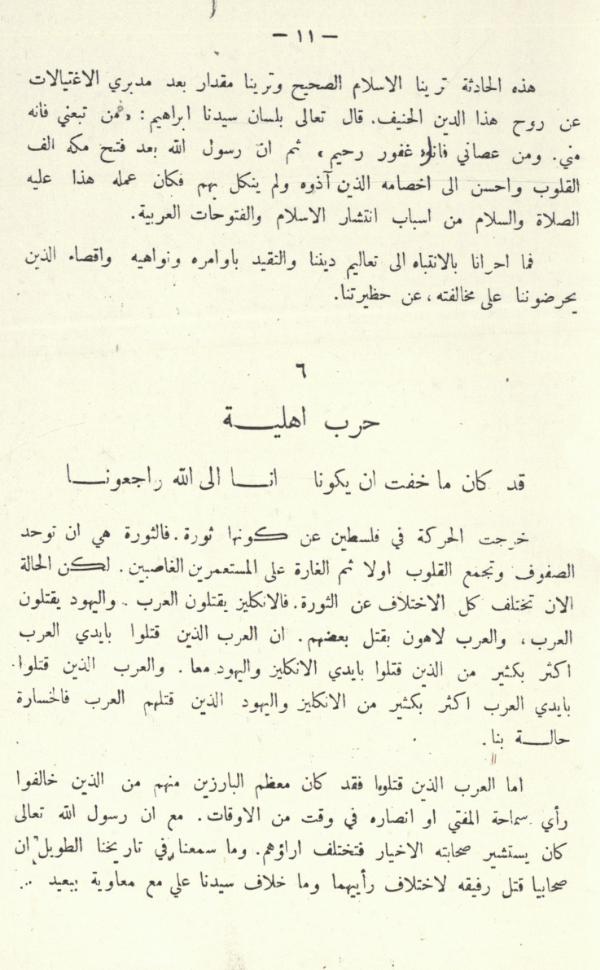 — ١١ —
هذه الحادثة ترينا الاسلام الصحيح وترينا مقدار بعد مدبري الاغتيالات
عن روح هذا الدين الحنيف. قال تعالى بلسان سيدنا ابراهيم: «فمن تبعني فانه
مني. ومن عصاني فانك غفور رحيم» ثم ان رسول الله بعد فتح مكة الف
القلوب واحسن الى اخصامه الذين آذوه ولم ينكل بهم فكان عمله هذا عليه
الصلاة والسلام من اسباب انتشار الاسلام والفتوحات العربية.
فما احرانا بالانتباه الى تعاليم ديننا والتقيد باوامره ونواهيه واقصاء الذين
يحرضوننا على مخالفته، عن حظيرتنا.
٦
حرب اهليـــة
قد كان ما خفت ان يكونا انـــا الى الله راجعونـــا
خرجت الحركة في فلسطين عن كونها ثورة. فالثورة هي ان توحد
الصفوف وتجمع القلوب اولا ثم الغارة على المستعمرين الغاصبين. لكن الحالة
الان تختلف كل الاختلاف عن الثورة. فالانكليز يقتلون العرب. واليهود يقتلون
العرب، والعرب لاهون بقتل بعضهم. ان العرب الذين قتلوا بايدي العرب
اكثر بكثير من الذين قتلوا بايدي الانكليز واليهود معا. والعرب الذين قتلوا
بايدي العرب اكثر بكثير من الانكليز واليهود الذين قتلهم العرب فالخسارة
حالـــة بنا.
اما العرب الذين قتلوا فقد كان معظم البارزين منهم من الذين خالفوا
رأي سماحة المفتي او انصاره في وقت من الاوقات. مع ان رسول الله تعالى
كان يستشير صحابته الاخيار فتختلف اراؤهم. وما سمعنا في تاريخنا الطويل ان
صحابيا قتل رفيقه لاختلاف رأييهما وما خلاف سيدنا علي مع معاوية ببعيد ..